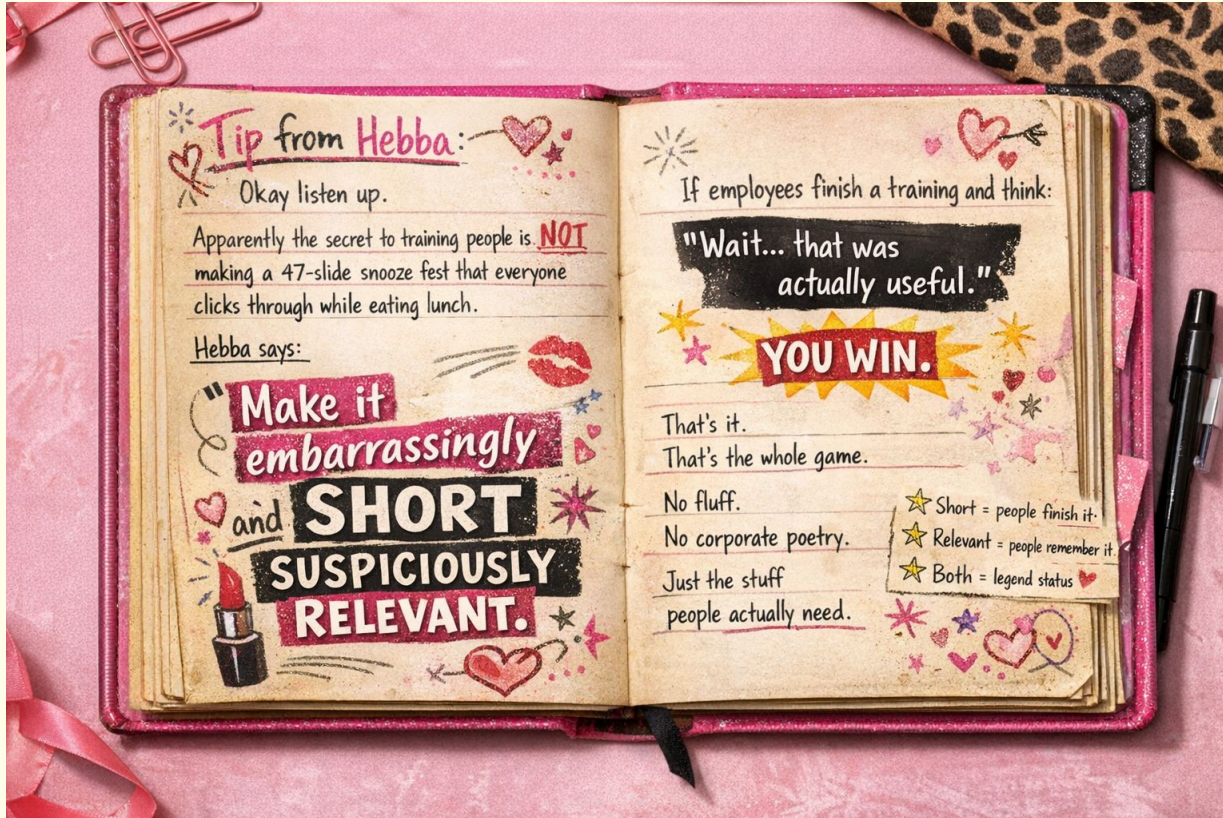 Tip from Hebba:
Okay listen up.
Apparently the secret to training people is NOT
making a 47-slide snooze fest that everyone
clicks through while eating lunch.
Hebba says:
"Make it
embarrassingly
and SHORT
SUSPICIOUSLY
RELEVANT.
If employees finish a training and think:
"Wait... that was
actually useful."
YOU WIN.
That's it.
That's the whole game.
No fluff.
No corporate poetry.
Just the stuff
people actually need.
Short = people finish it.
Relevant = people remember it.
Both = legend status